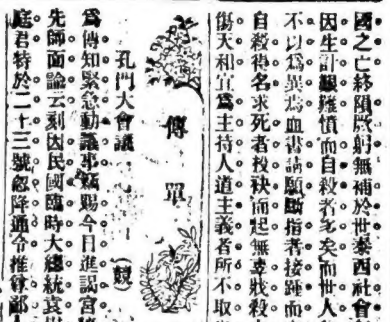 國之亡終隕厥身無補於世泰西社會
因生計艱難憤而自殺者多矣而世人
不以為異為血書請願斷指者接踵而
自殺得名求死者投袂而起無辜戕殺
傷天和宜為主持人道主義者所不取
傳單
孔門大會議
為傳知緊急動議事竊賜今日進謁宮
先師面諭云刻因民國臨時大總統袁
庭君特於二十三號忽降通令推尊鄙人